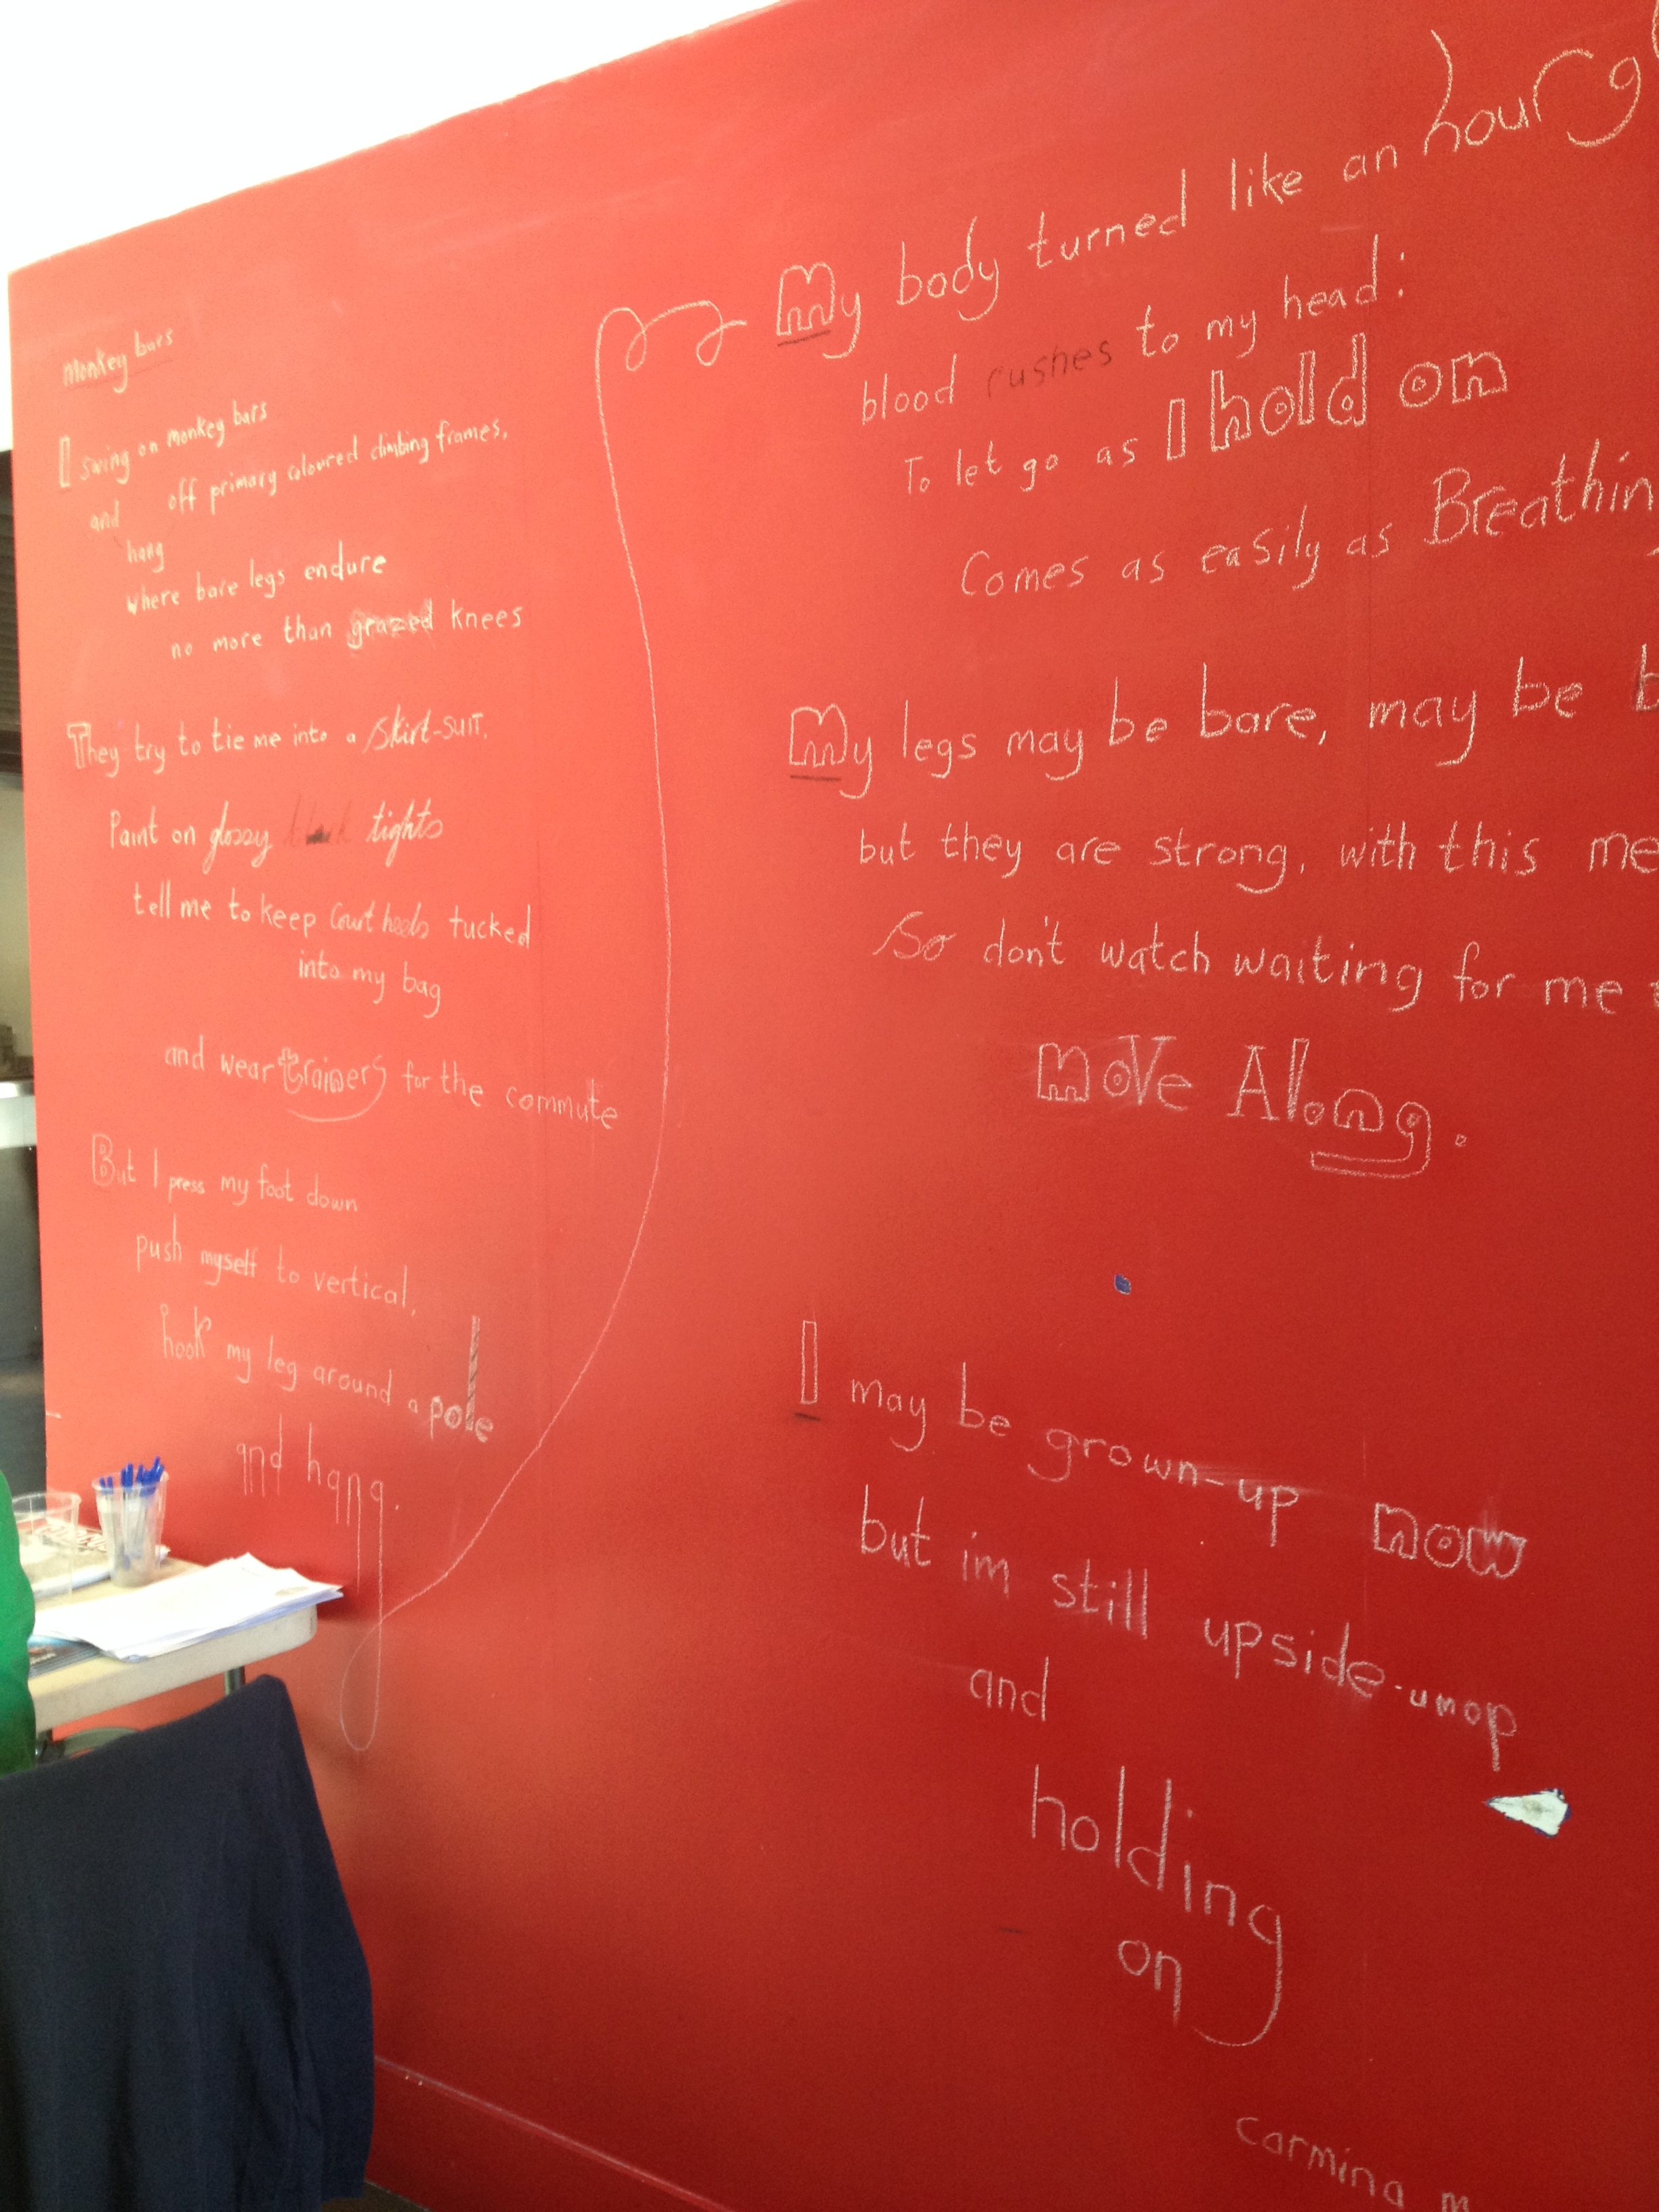 Monkey bars
I swing on monkey bars
and off primary coloured climbing frames,
hang
where bare legs endure
no more than grazed knees
They try to tie me into a skirt-suit,
Paint on glossy black tights
tell me to keep court heels tucked
into my bag
and wear trainers for the commute
But I press my foot down
push myself to vertical,
hook my leg around a pole
and hang.
My body turned like an hourg
blood rushes to my head:
To let go as I hold on
Comes as easily as Breathin
My legs may be bare, may be b
but they are strong, with this me
So don't watch waiting for me
Move Along.
I may be grown-up now
but im still upside-umop
and
holding
on
Carmina M